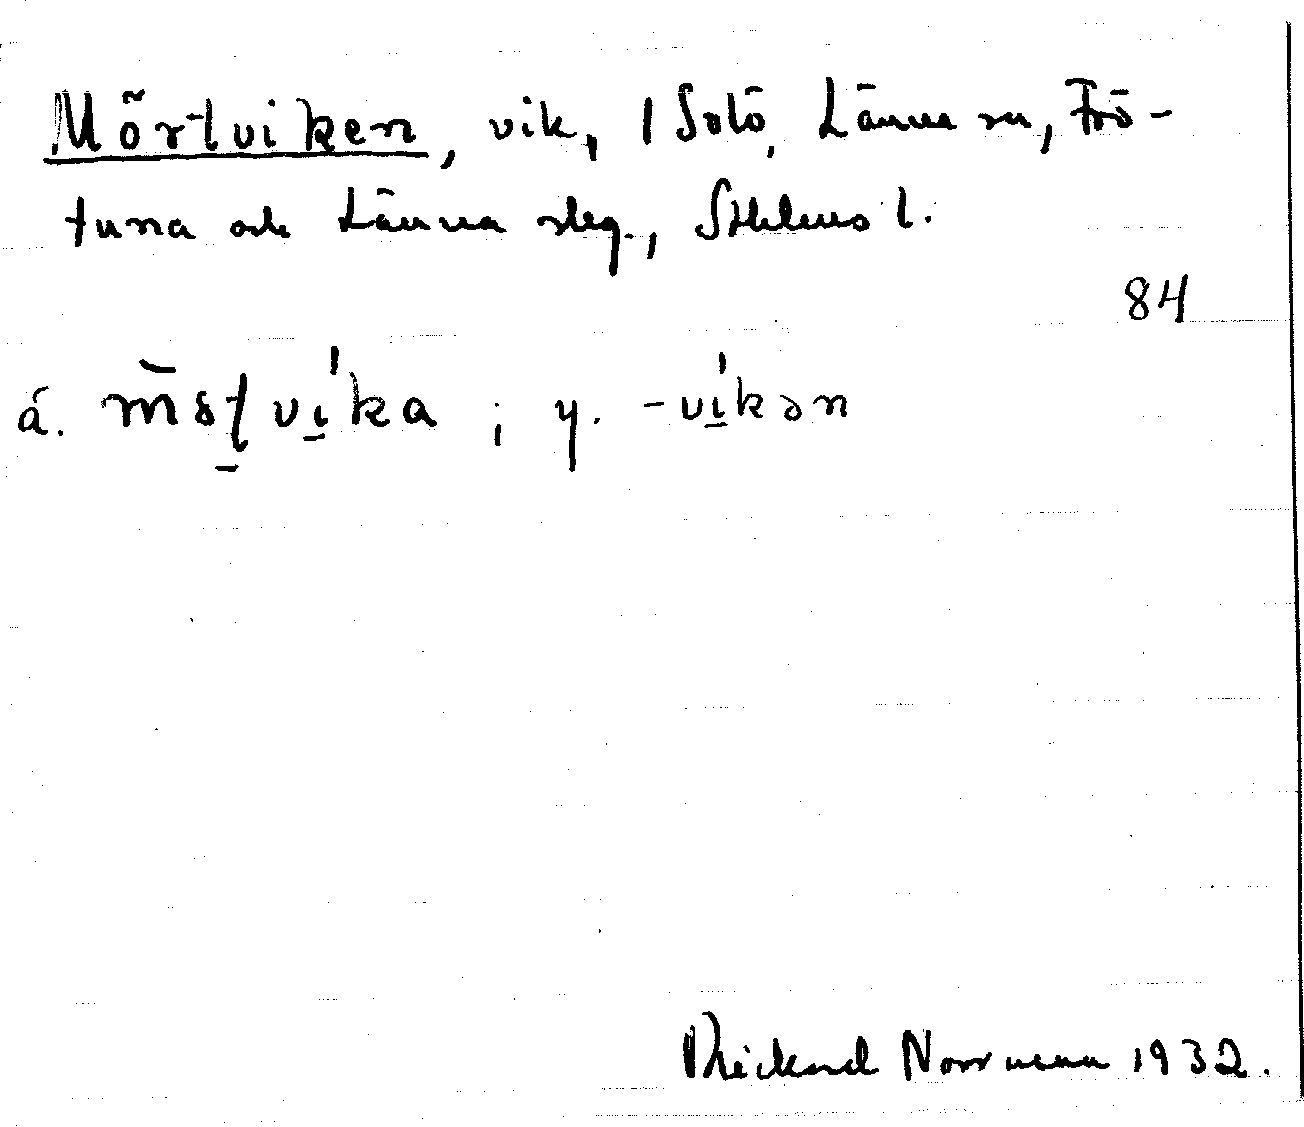 Mörtviken, vik, 1 Solö, Länna sn, Frö-
tuna och Länna sklg., Sthlms l.
84
ä. ; y. -vi̱ˈkən
Rickard Norrman 1932.